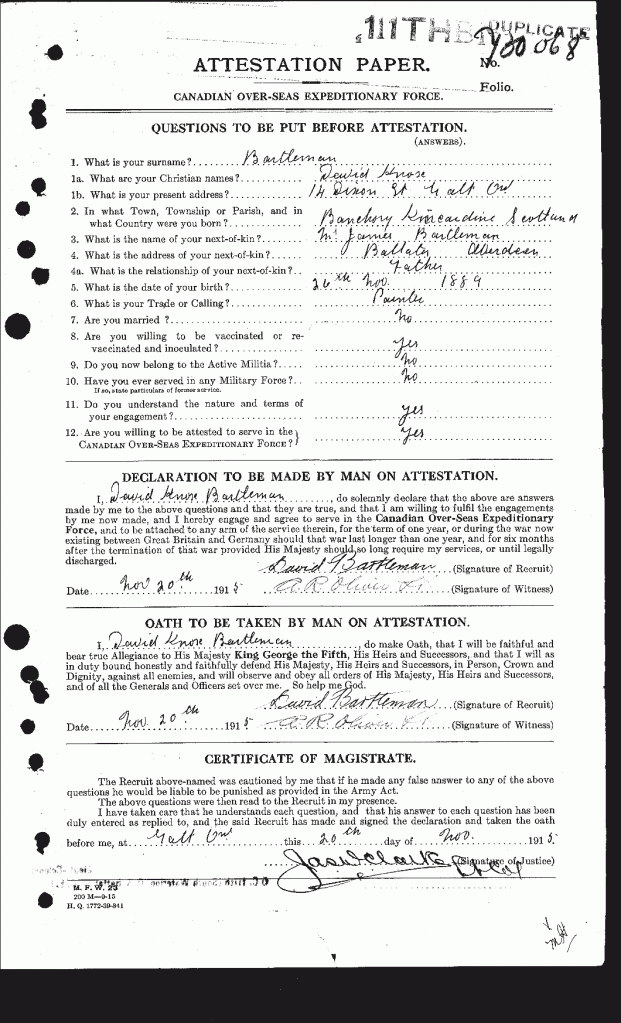 111TH BN
DUPLICATE
No. 700068
Folio.
ATTESTATION PAPER.
CANADIAN OVER-SEAS EXPEDITIONARY FORCE.
QUESTIONS TO BE PUT BEFORE ATTESTATION.
(ANSWERS).
1. What is your surname?.......... Bartleman
1a. What are your Christian names?............ David Knox
1b. What is your present address?............ 14 Dixon St Galt Ont
2. In what Town, Township or Parish, and in
what Country were you born?............ Banchory Kincardine Scotland
3. What is the name of your next-of-kin?........ Mr James Bartleman
4. What is the address of your next-of-kin?........ Ballater Aberdeen
4a. What is the relationship of your next-of-kin?.. Father
5. What is the date of your birth?............ 26th Nov. 1889
6. What is your Trade or Calling?............ Painter
7. Are you married ?............ no
8. Are you willing to be vaccinated or re-
vaccinated and inoculated?............ yes
9. Do you now belong to the Active Militia?...... no
10. Have you ever served in any Military Force?.. no
If so, state particulars of former service.
11. Do you understand the nature and terms of
your engagement?............ yes
12. Are you willing to be attested to serve in the
CANADIAN OVER-SEAS EXPEDITIONARY FORCE? } yes
DECLARATION TO BE MADE BY MAN ON ATTESTATION.
I, David Knox Bartleman, do solemnly declare that the above are answers
made by me to the above questions and that they are true, and that I am willing to fulfil the engagements
by me now made, and I hereby engage and agree to serve in the Canadian Over-Seas Expeditionary
Force, and to be attached to any arm of the service therein, for the term of one year, or during the war now
existing between Great Britain and Germany should that war last longer than one year, and for six months
after the termination of that war provided His Majesty should so long require my services, or until legally
discharged.
David Bartleman (Signature of Recruit)
Date Nov 20th 1915 A R Oliver Lt (Signature of Witness)
OATH TO BE TAKEN BY MAN ON ATTESTATION.
I, David Knox Bartleman, do make Oath, that I will be faithful and
bear true Allegiance to His Majesty King George the Fifth, His Heirs and Successors, and that I will as
in duty bound honestly and faithfully defend His Majesty, His Heirs and Successors, in Person, Crown and
Dignity, against all enemies, and will observe and obey all orders of His Majesty, His Heirs and Successors,
and of all the Generals and Officers set over me. So help me God.
David Bartleman (Signature of Recruit)
Date Nov 20th 1915 A R Oliver Lt (Signature of Witness)
CERTIFICATE OF MAGISTRATE.
The Recruit above-named was cautioned by me that if he made any false answer to any of the above
questions he would be liable to be punished as provided in the Army Act.
The above questions were then read to the Recruit in my presence.
I have taken care that he understands each question, and that his answer to each question has been
duly entered as replied to, and the said Recruit has made and signed the declaration and taken the oath
before me, at Galt Ont this 20th day of Nov. 1915.
Jas W Clarke Lt Col (Signature of Justice)
M. F. W. 23
200 M—9-15
H. Q. 1772-39-841